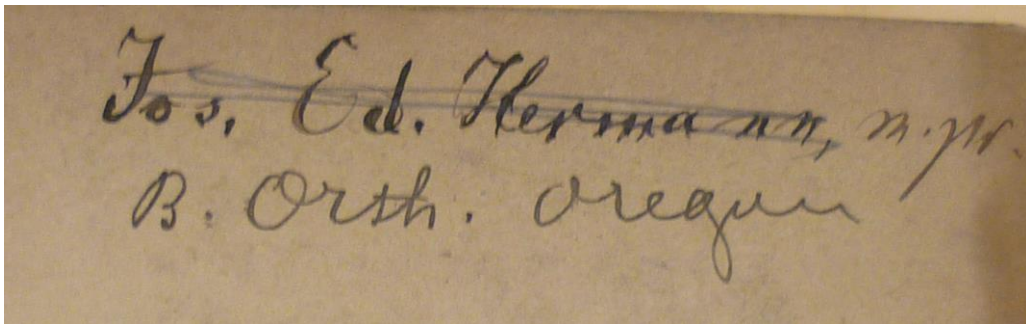 Jos. Ed. Hermann, m.pr.
B. Orth. Oregon